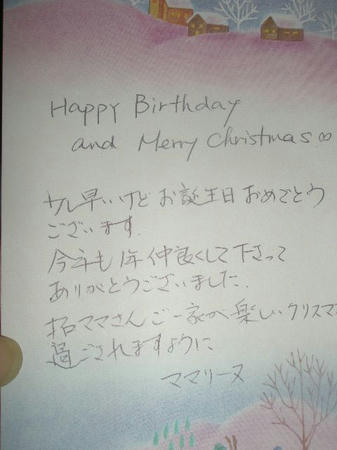 Happy Birthday
and Merry Christmas∞
少し早いけど お誕生日 おめでとう
ございます.
今年も1年 仲良くして下さって
ありがとうございました.
拓ママさん ご一家が 楽しいクリスマ
過ごされますように
ママリーヌ